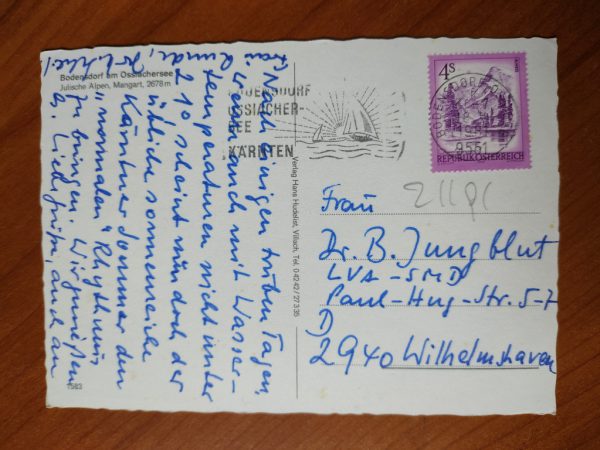 Bodensdorf am Ossiachersee
Julische Alpen, Mangart, 2678 m
Nach einigen trüben Tagen,
wenn auch mit Wasser-
temperaturen nicht unter
21° scheint nun doch der
übliche sonnenreiche
Kärntner Sommer den
"normalen" Rhythmus
zu bringen. Wir genießen
es. Liebe Grüße, auch an
1583
Verlag Hans Hudelist, Villach, Tel. 04242/27335
BODENSDORF
OSSIACHER-
SEE
KÄRNTEN
4S
BODENSDORF
9551
REPUBLIK ÖSTERREICH
Frau
Dr. B. Jungblut
LVA-SMD
Paul-Hug-Str. 5-7
D
2940 Wilhelmshaven